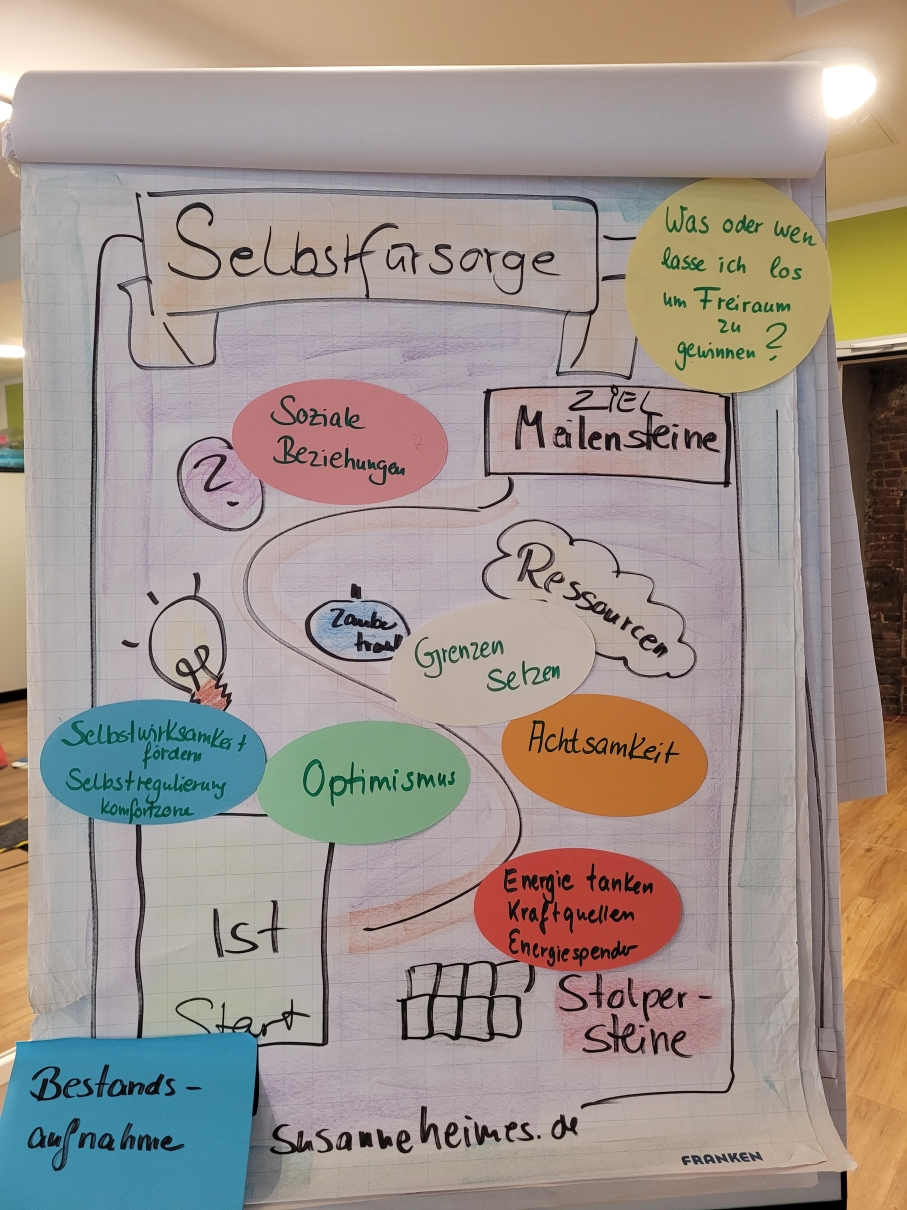 Selbstfürsorge
Was oder wen
lasse ich los
um Freiraum
zu
gewinnen?
ZIEL
Meilensteine
Soziale
Beziehungen
?
Ressourcen
Grenzen
setzen
Achtsamkeit
Selbstwirksamkeit
fördern
Selbstregulierung
Komfortzone
Optimismus
Energie tanken
Kraftquellen
Energiespender
Ist
Start
Stolper-
steine
Bestands-
aufnahme
susanneheimes.de
FRANKEN